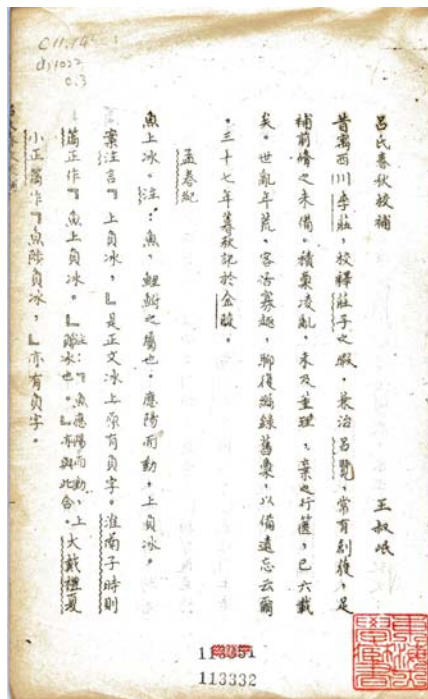 C11.14
d)1022
C.3
呂氏春秋校補
王叔岷
昔寓西川李莊，校釋莊子之暇，兼治呂覽，常有創獲，足
補前脩之未備。積稾凌亂，未及董理，棄之行篋，已六載
矣。世亂年荒，客居寡趣，聊復繕錄舊稾，以備遺忘云爾
。三十七年暮秋記於金陵。
孟春紀
魚上冰。注：魚，鯉鮒之屬也。應陽而動，上負冰。
案注言『上負冰，』是正文冰上原有負字。淮南子時則
篇正作『魚上負冰。』注：『魚應陽而動，上負冰也。』亦與此合。大戴禮夏
小正篇作『魚陟負冰，』亦有負字。
113332